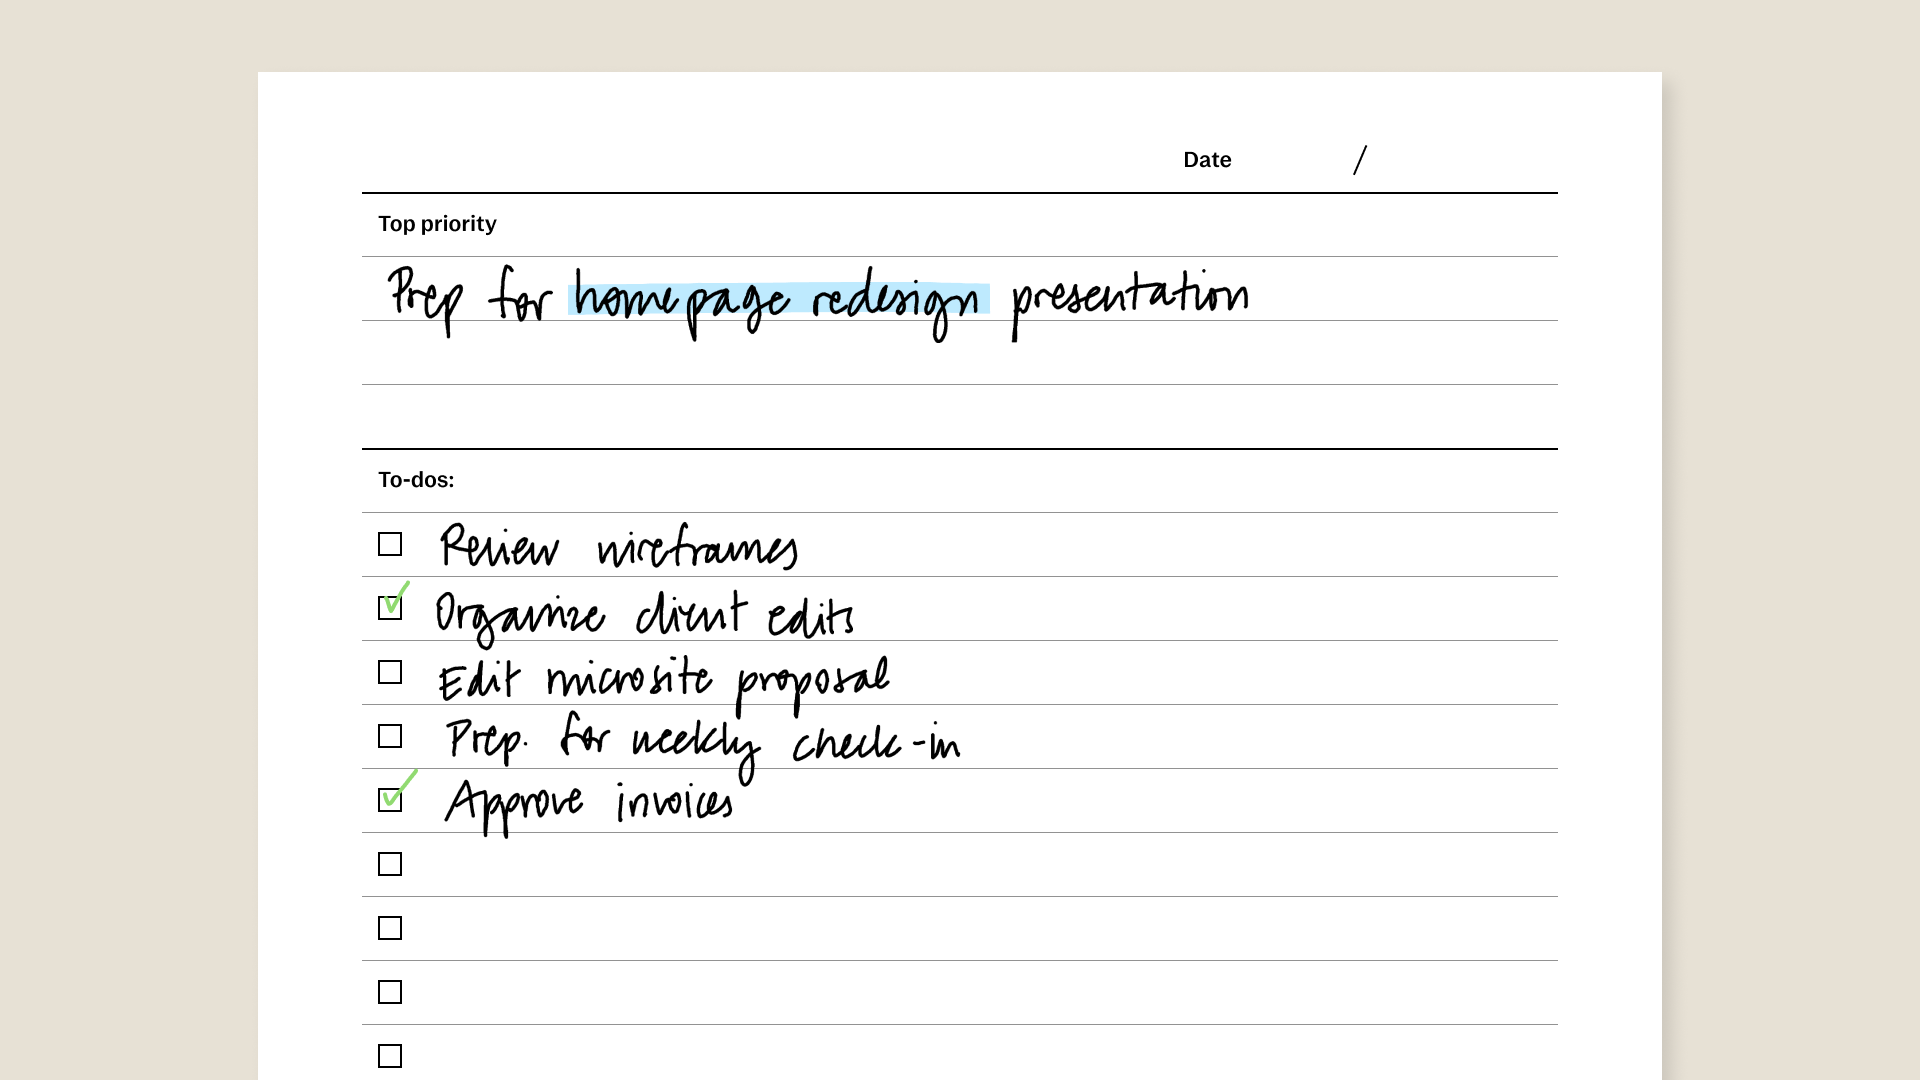 Date /
Top priority
Prep for homepage redesign presentation
To-dos:
Review wireframes
Organize client edits
Edit microsite proposal
Prep. for weekly check-in
Approve invoices